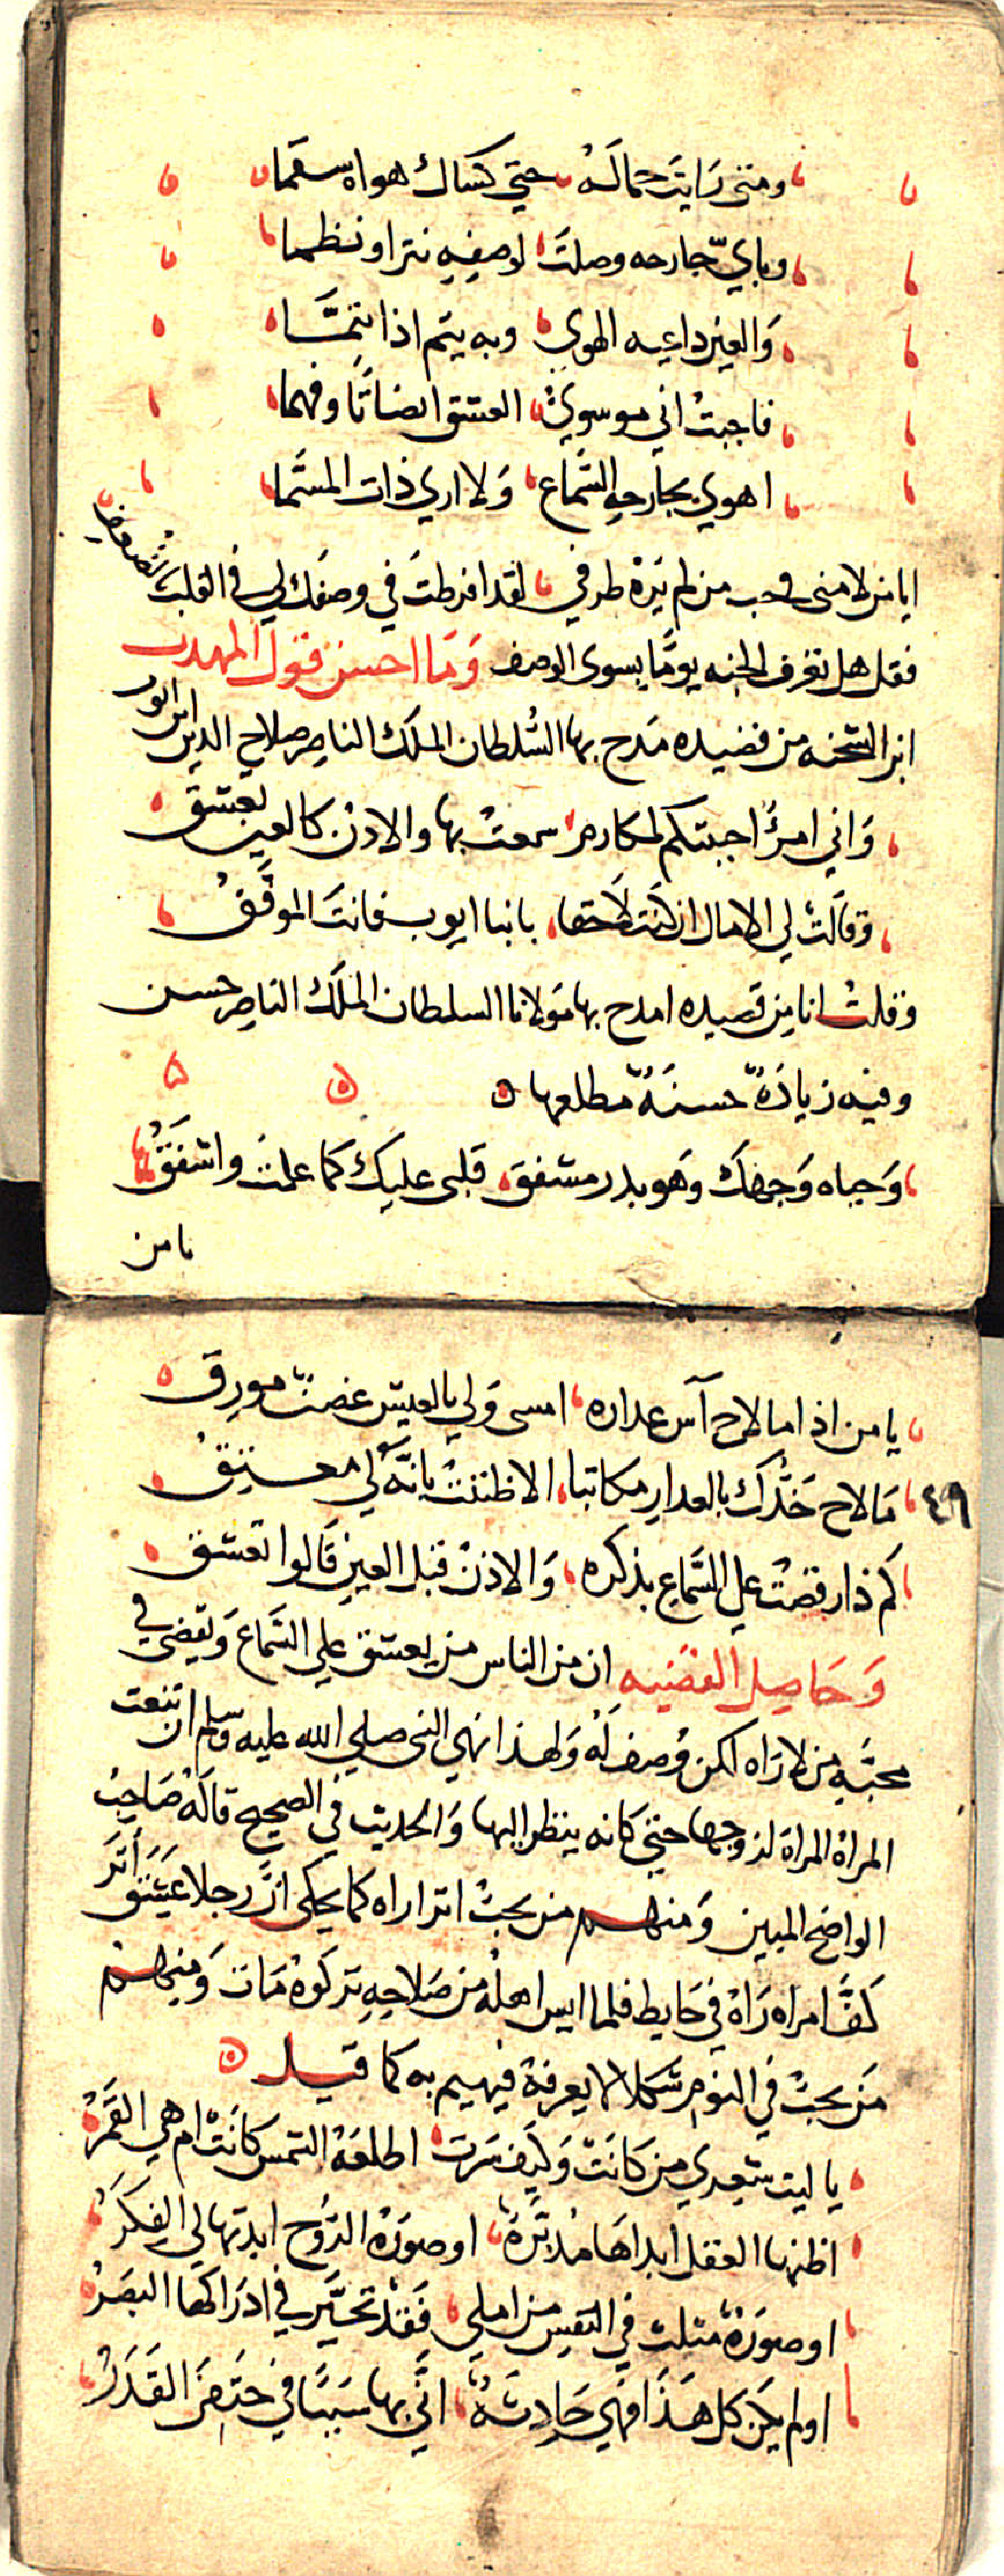 ومتى رَايتَ جماله حتي كساك هواه سقما
وباي جارحه وصلتَ لوصفِهِ نثرا ونظما
وَالعين داعيه الهوي وبه يتم اذا تنمَّا
فاجبتُ اني موسويُّ العشق انصاتًا وفهما
اهوي بجارحه السَّماع وَلا اري ذات المسَّما
ايا من لامني في حب من لم يَرَهُ طرفي لقد افرطتَ في وصفك لي في القلب بالضعف
فقل هل تعرف الجنه يومًا بسوى الوصف وَمَا احسن قول المهذب
ابن الشحنه من قصيده مَدح بها السُّلطان الملك الناصر صلاح الدين ابن ايوب
وَاني امرؤُ احببتكم لمكارم سمعتُ بها والاذن كالعين تعشق
وقالت لي الامال ان كنت لاحقا بابنا ايوب فانتَ الموفَّقُ
وقلتُ انا من قصيده امدح بها مَولانا السلطان الملك الناصر حسن
وفيه زيادَةٌ حسنَةٌ مطلعها
وَحياه وَجهك وَهو بدر مشفق قلبى عليك كما علمت واشفَقُ
يا من
يا من اذا ما لاح آس عداره امسى وَلي بالعيش غصنٌ مورِق
٤٩
مَا لاح خَدُّك بالعدار مكاتبا الا ظننتُ بانَّه لي معتِقُ
كم ذا رقصت علي السَّماع بذكره وَالاذن قبل العين قَالوا تعشق
وَحَاصِل القضيه ان من الناس من يعشق علي السَّماع وَيقضى في
محبَّهِ من لا رَاه لكن وُصف لَهُ وَلهذا نهي النبى صلي الله عليه وسلم ان تنعت
المراة المراة لزوجها حتي كانه ينظر اليها وَالحديث في الصحيح قالَهُ صَاحِبُ
الواضح المبين وَمنهم من يحبُ اثرا راه كما يحكى انَّ رجلا عَشِقَ اَثَر
كَفّ امراه رَاهُ في حَايط فلما ايس اهلهُ من صَلاحِهِ تركوهُ مَات وَمنهم
مَن يحبُ في النوم شكلا لا يعرفهُ فيهيم به كما قيل
يا ليت شعري من كَانَتْ وَكَيفَ سَرَت اطلعَهُ الشمس كانَتْ ام هي القَمَرُ
اظنها العقل ابداهَا مُدبِّرَةً او صورَهُ الرُّوح ابدتها لي الفِكَرُ
او صورَهٌ مثلت في النفس من املي فَقَدْ تحيَّر في ادرَاكهَا البَصَرُ
او لم يكن كل هَذَا فهي حَادِثَةٌ اتَّي بها سَببًا في حتفِىَ القَدَرُ